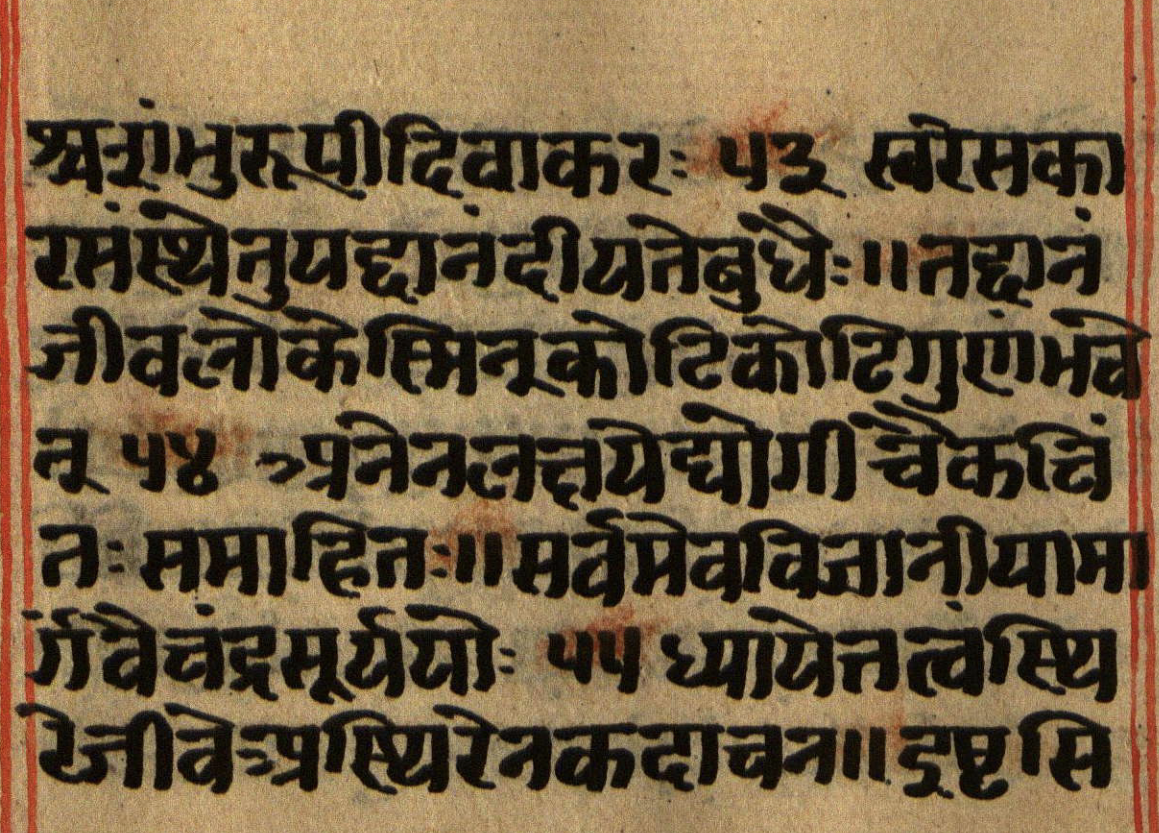 श्चशंभुरूपीदिवाकरः ५३ स्वरेसका
रसंस्थेतुयद्दानंदीयतेबुधैः॥तद्दानं
जीवलोकेस्मिन्कोटिकोटिगुणंभवे
त् ५४ अनेनलक्षयेद्योगीचैकचिं
तःसमाहितः॥सर्वमेवविजानीयामा
र्गवेचंद्रसूर्ययोः ५५ ध्यायेत्तत्वंस्थि
रेजीवेअस्थिरेनकदाचन॥इष्टसि